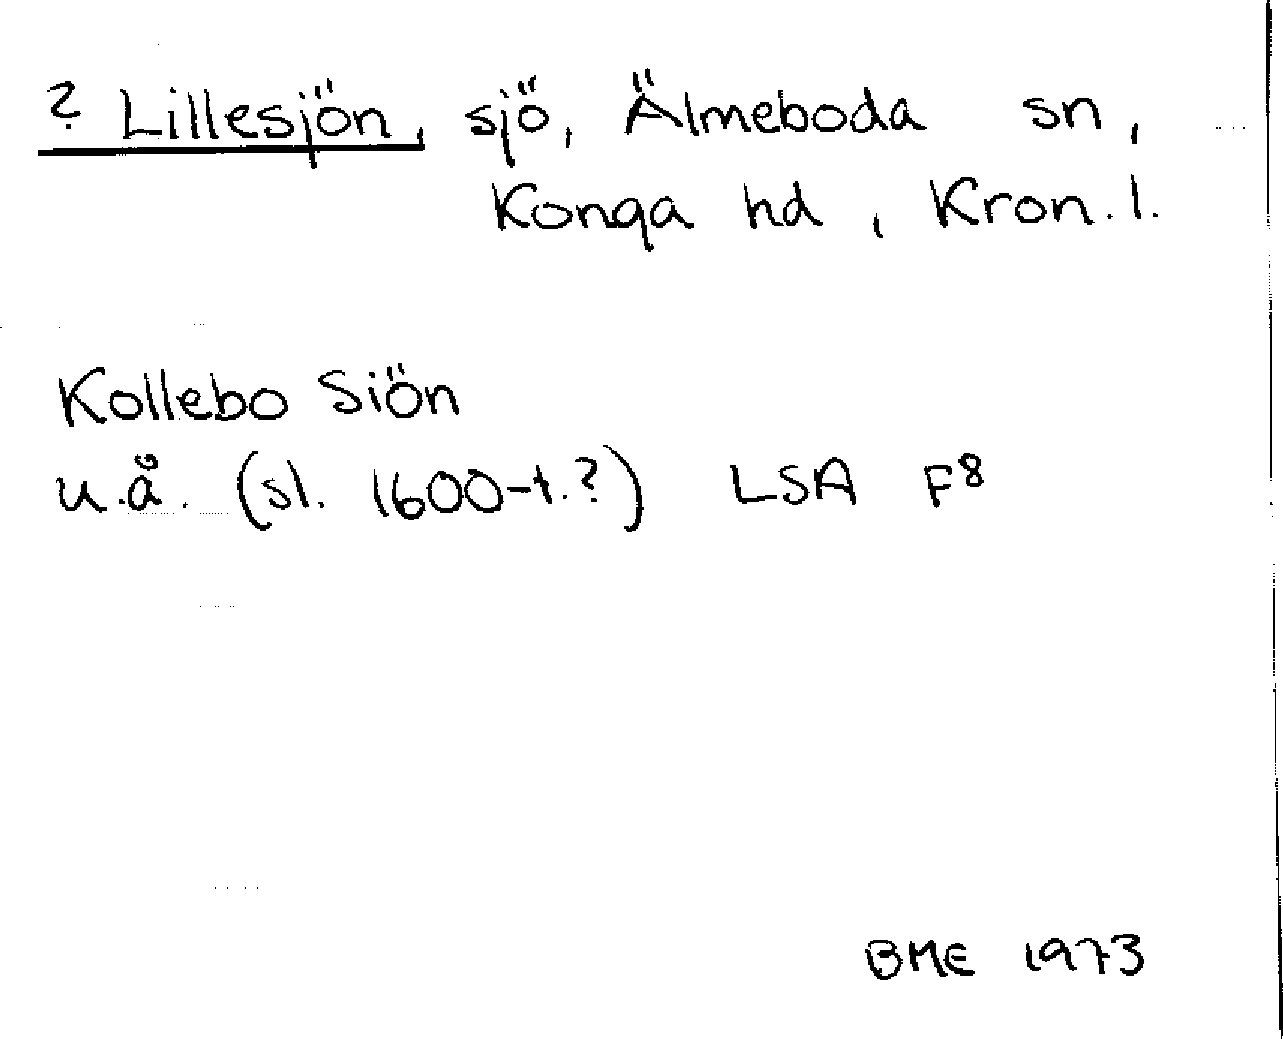 ? Lillesjön, sjö, Älmeboda sn,
Konga hd, Kron. l.
Kollebo Siön
u.å. (sl. 1600-t.?) LSA F8
BME 1973